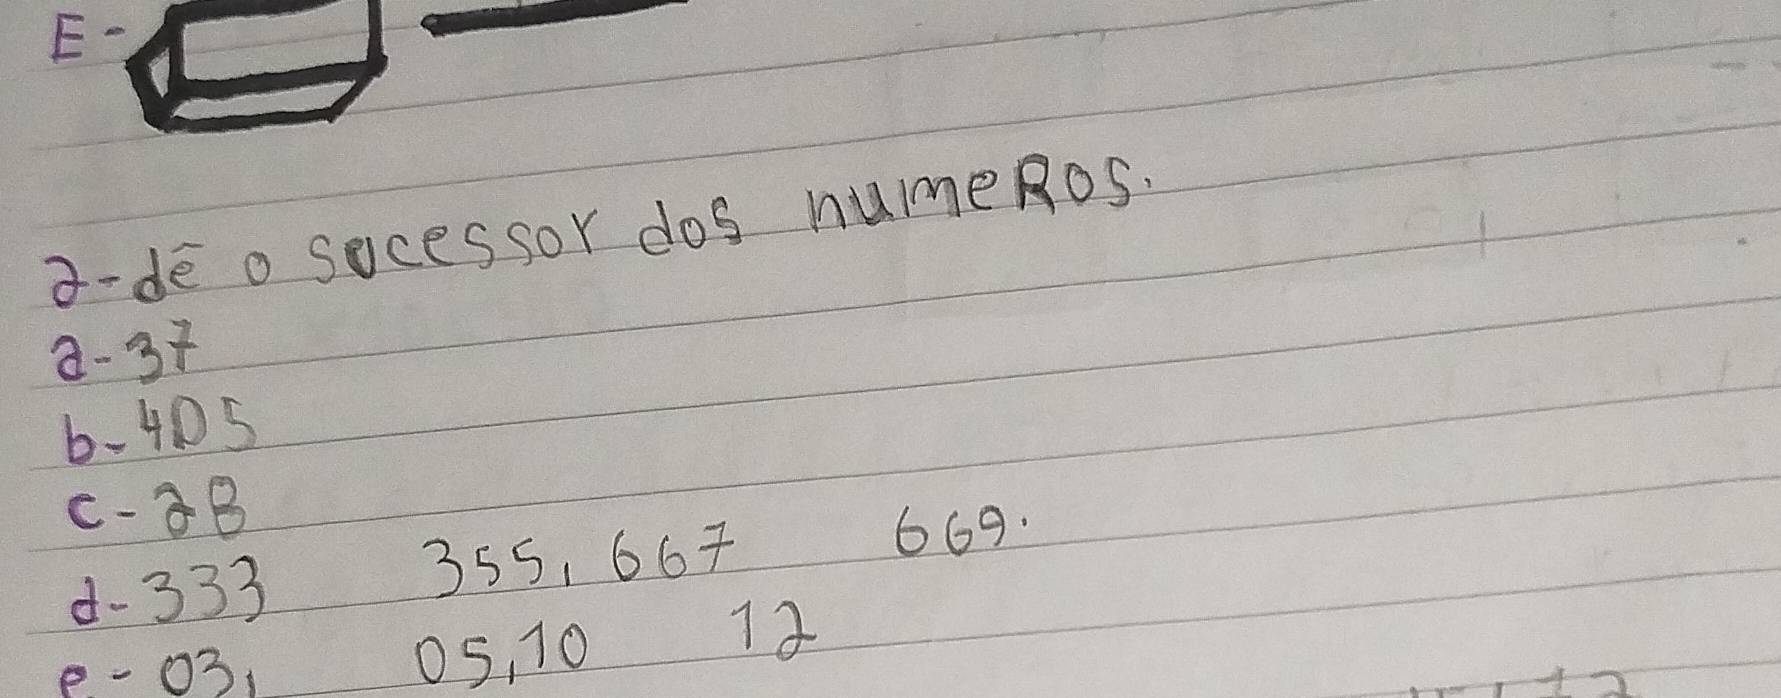 E-
2-dê o sucessor dos numeRos.
a-37
b-405
c-28
d-333 355, 667 669.
e-03, 05,10 12